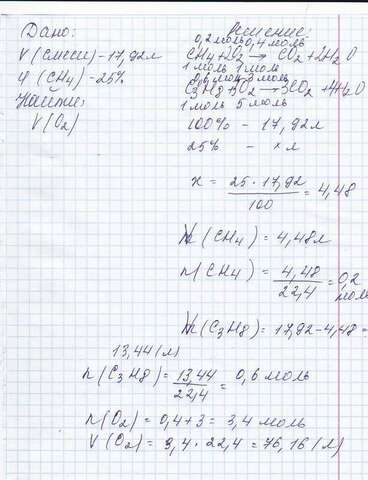 Дано:
Решение:
V(смеси)-17,92л
φ(CH4)-25%
Найти:
V(O2)
0,2моль 0,4 моль
CH4+2O2 → CO2+2H2O
1 моль
0,6 моль 3 моль
C3H8+5O2 → 3CO2+4H2O
1 моль 5 моль
100% - 17,92л
25% - x л
x = 25·17,92 / 100 = 4,48
V(CH4) = 4,48л
n(CH4) = 4,48 / 22,4 = 0,2 моль
V(C3H8) = 17,92-4,48=
13,44(л)
n(C3H8) = 13,44 / 22,4 = 0,6 моль
n(O2) = 0,4+3 = 3,4 моль
V(O2) = 3,4·22,4 = 76,16(л)